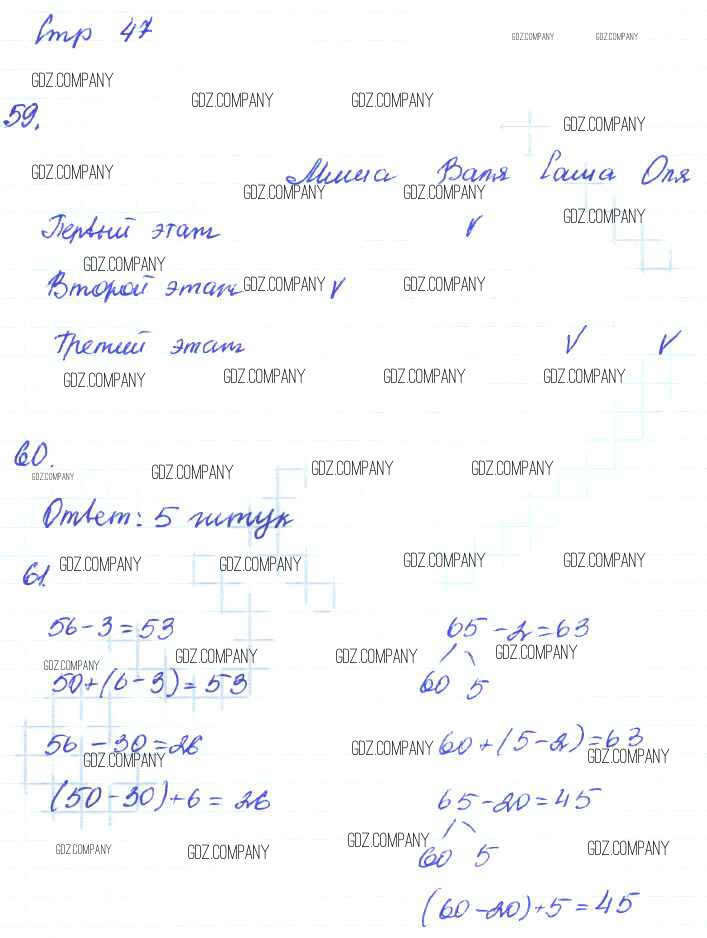 Стр 47
GDZ.COMPANY GDZ.COMPANY
GDZ.COMPANY
GDZ.COMPANY GDZ.COMPANY
59.
GDZ.COMPANY
GDZ.COMPANY
Миша Ватя Саша Оля
GDZ.COMPANY GDZ.COMPANY
GDZ.COMPANY
Первый этап V
GDZ.COMPANY
Второй этап V
GDZ.COMPANY GDZ.COMPANY
Третий этап V V
GDZ.COMPANY GDZ.COMPANY GDZ.COMPANY GDZ.COMPANY
60.
GDZ.COMPANY GDZ.COMPANY GDZ.COMPANY GDZ.COMPANY
Ответ: 5 штук
61.
GDZ.COMPANY GDZ.COMPANY GDZ.COMPANY GDZ.COMPANY
56-3=53 65-2=63
GDZ.COMPANY GDZ.COMPANY GDZ.COMPANY GDZ.COMPANY
50+(6-3)=53 60 5
56-30=26 60+(5-2)=63
GDZ.COMPANY GDZ.COMPANY GDZ.COMPANY
(50-30)+6=26 65-20=45
GDZ.COMPANY GDZ.COMPANY GDZ.COMPANY GDZ.COMPANY
60 5
(60-20)+5=45